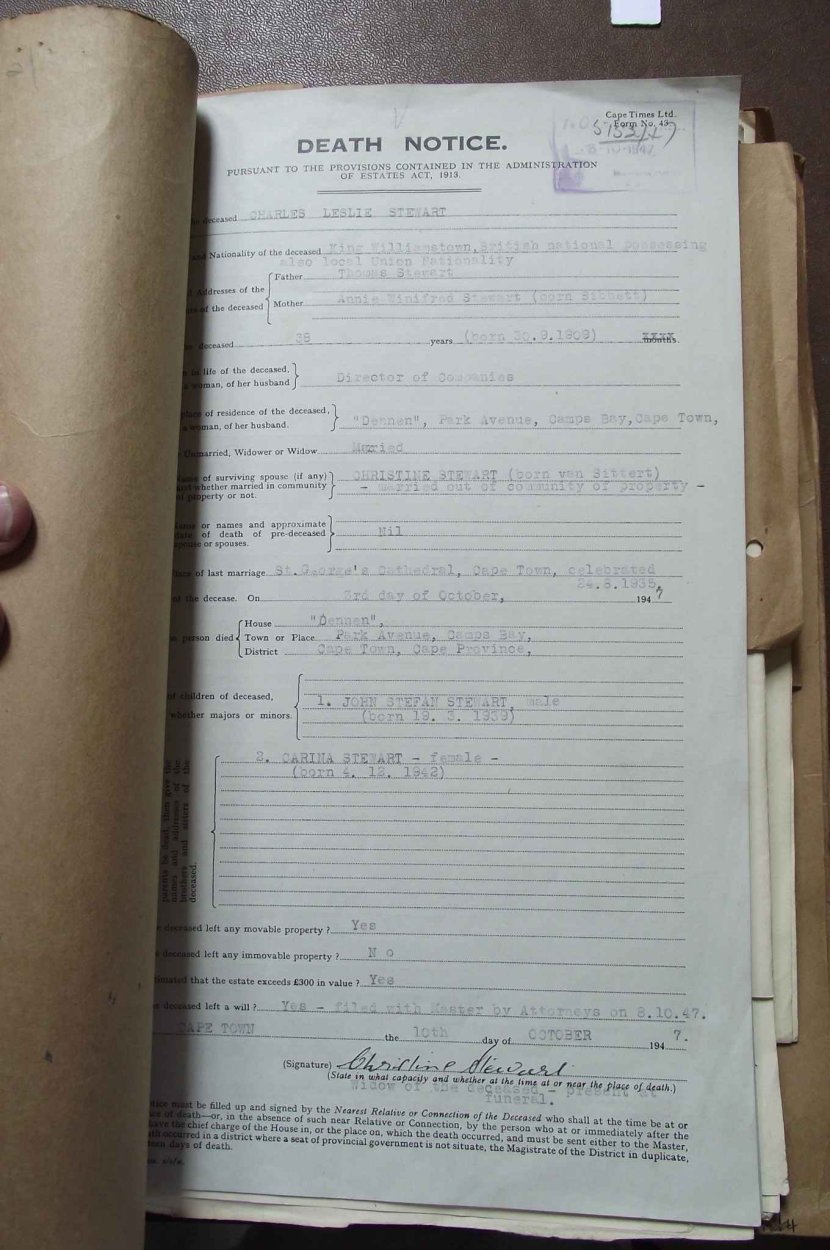 Cape Times Ltd.
Form No. 43
5132/47
DEATH NOTICE.
PURSUANT TO THE PROVISIONS CONTAINED IN THE ADMINISTRATION
OF ESTATES ACT, 1913.
deceased CHARLES LESLIE STEWART
and Nationality of the deceased King Williamstown, British national possessing
also local Union Nationality
Addresses of the
of the deceased
Father Thomas Stewart
Mother Annie Winifred Stewart (born Sibbett)
deceased 38 years (born 30.9.1909) months.
in life of the deceased,
woman, of her husband
Director of Companies
place of residence of the deceased,
woman, of her husband.
"Dennen", Park Avenue, Camps Bay, Cape Town,
Unmarried, Widower or Widow Married
Name of surviving spouse (if any)
and whether married in community
of property or not.
CHRISTINE STEWART (born van Sittert)
- married out of community of property -
Name or names and approximate
date of death of pre-deceased
spouse or spouses.
Nil
Place of last marriage St. George's Cathedral, Cape Town, celebrated
24.8.1935,
the decease. On 3rd day of October, 1947
person died
House "Dennen",
Town or Place Park Avenue, Camps Bay,
District Cape Town, Cape Province,
of children of deceased,
whether majors or minors.
1. JOHN STEFAN STEWART, male
(born 19. 3. 1939)
2. CARINA STEWART - female -
(born 4. 12. 1942)
parents be dead, then give the
names and addresses of the
brothers and sisters of the
deceased.
deceased left any movable property ? Yes
deceased left any immovable property ? No
estimated that the estate exceeds £300 in value ? Yes
deceased left a will ? Yes - filed with Master by Attorneys on 8.10.47.
CAPE TOWN the 10th day of OCTOBER 1947.
(Signature) Christine Stewart
(State in what capacity and whether at the time at or near the place of death.)
Widow of the deceased - present at
funeral.
notice must be filled up and signed by the Nearest Relative or Connection of the Deceased who shall at the time be at or
place of death—or, in the absence of such near Relative or Connection, by the person who at or immediately after the
have the chief charge of the House in, or the place on, which the death occurred, and must be sent either to the Master,
death occurred in a district where a seat of provincial government is not situate, the Magistrate of the District in duplicate,
days of death.